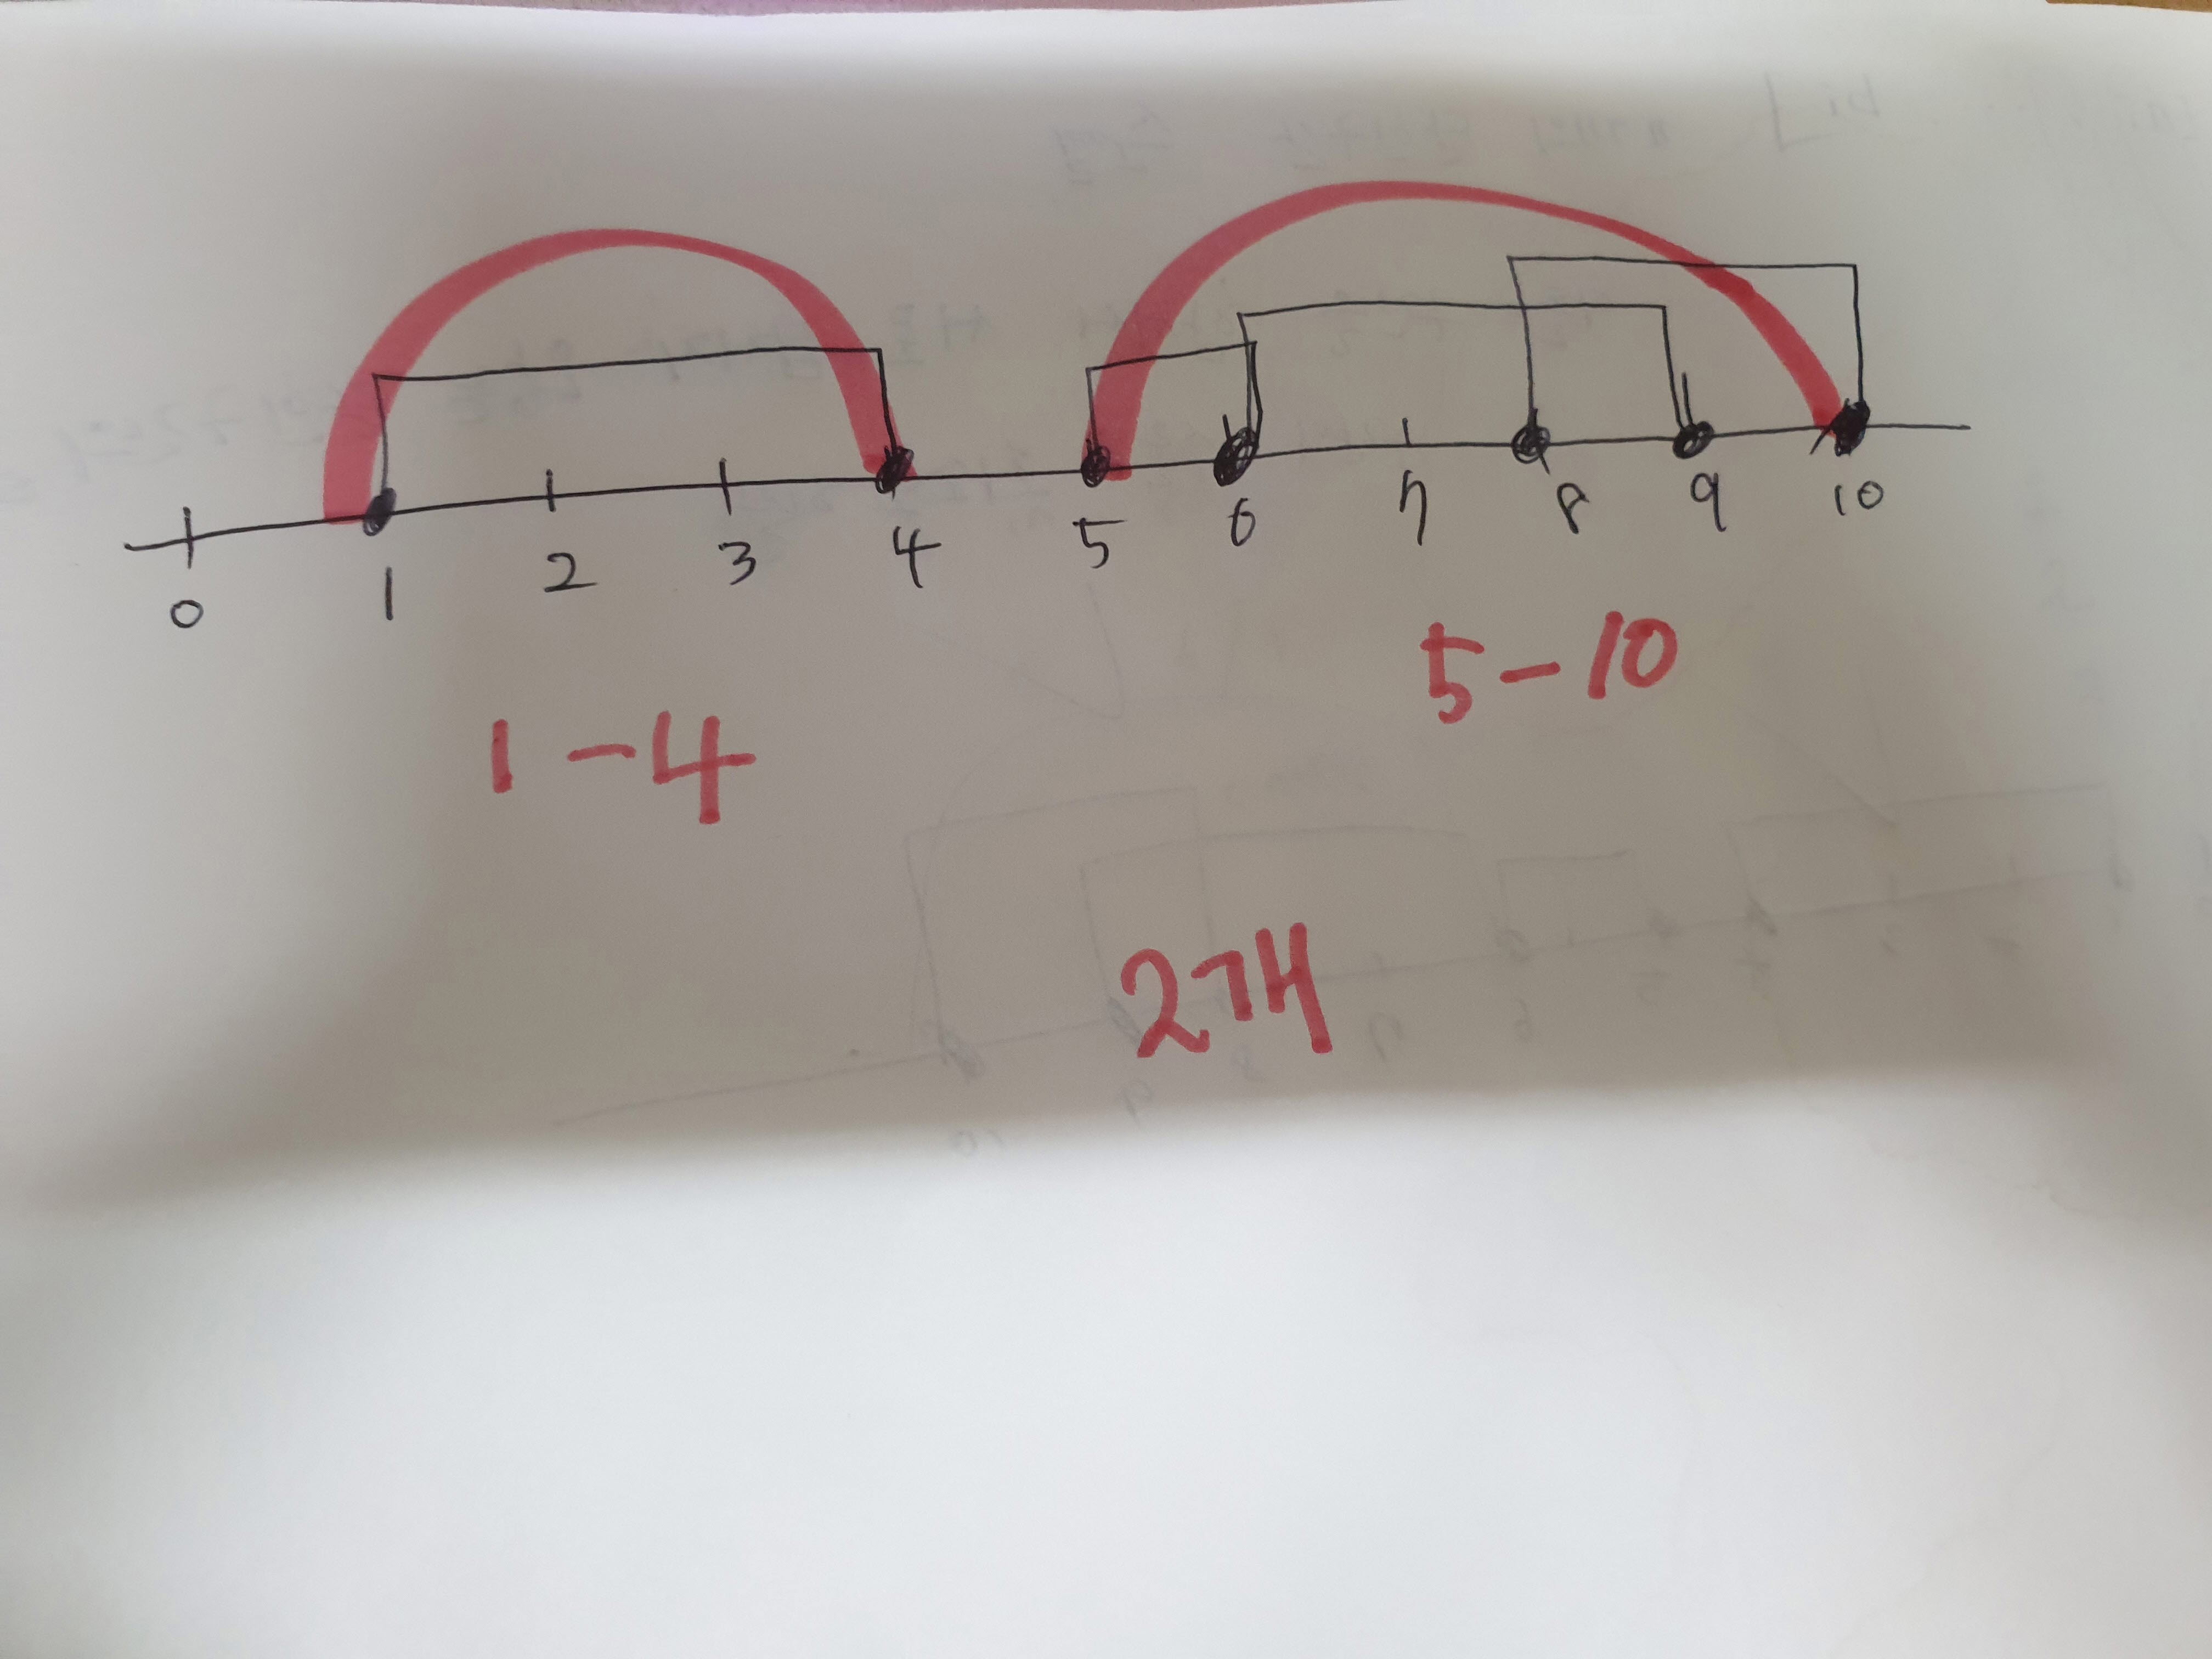 0 1 2 3 4 5 6 7 8 9 10
1-4 5-10
2개